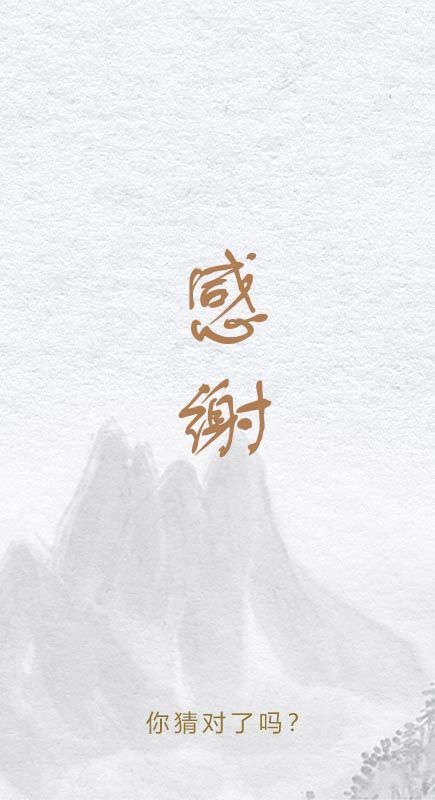 感谢
你猜对了吗？